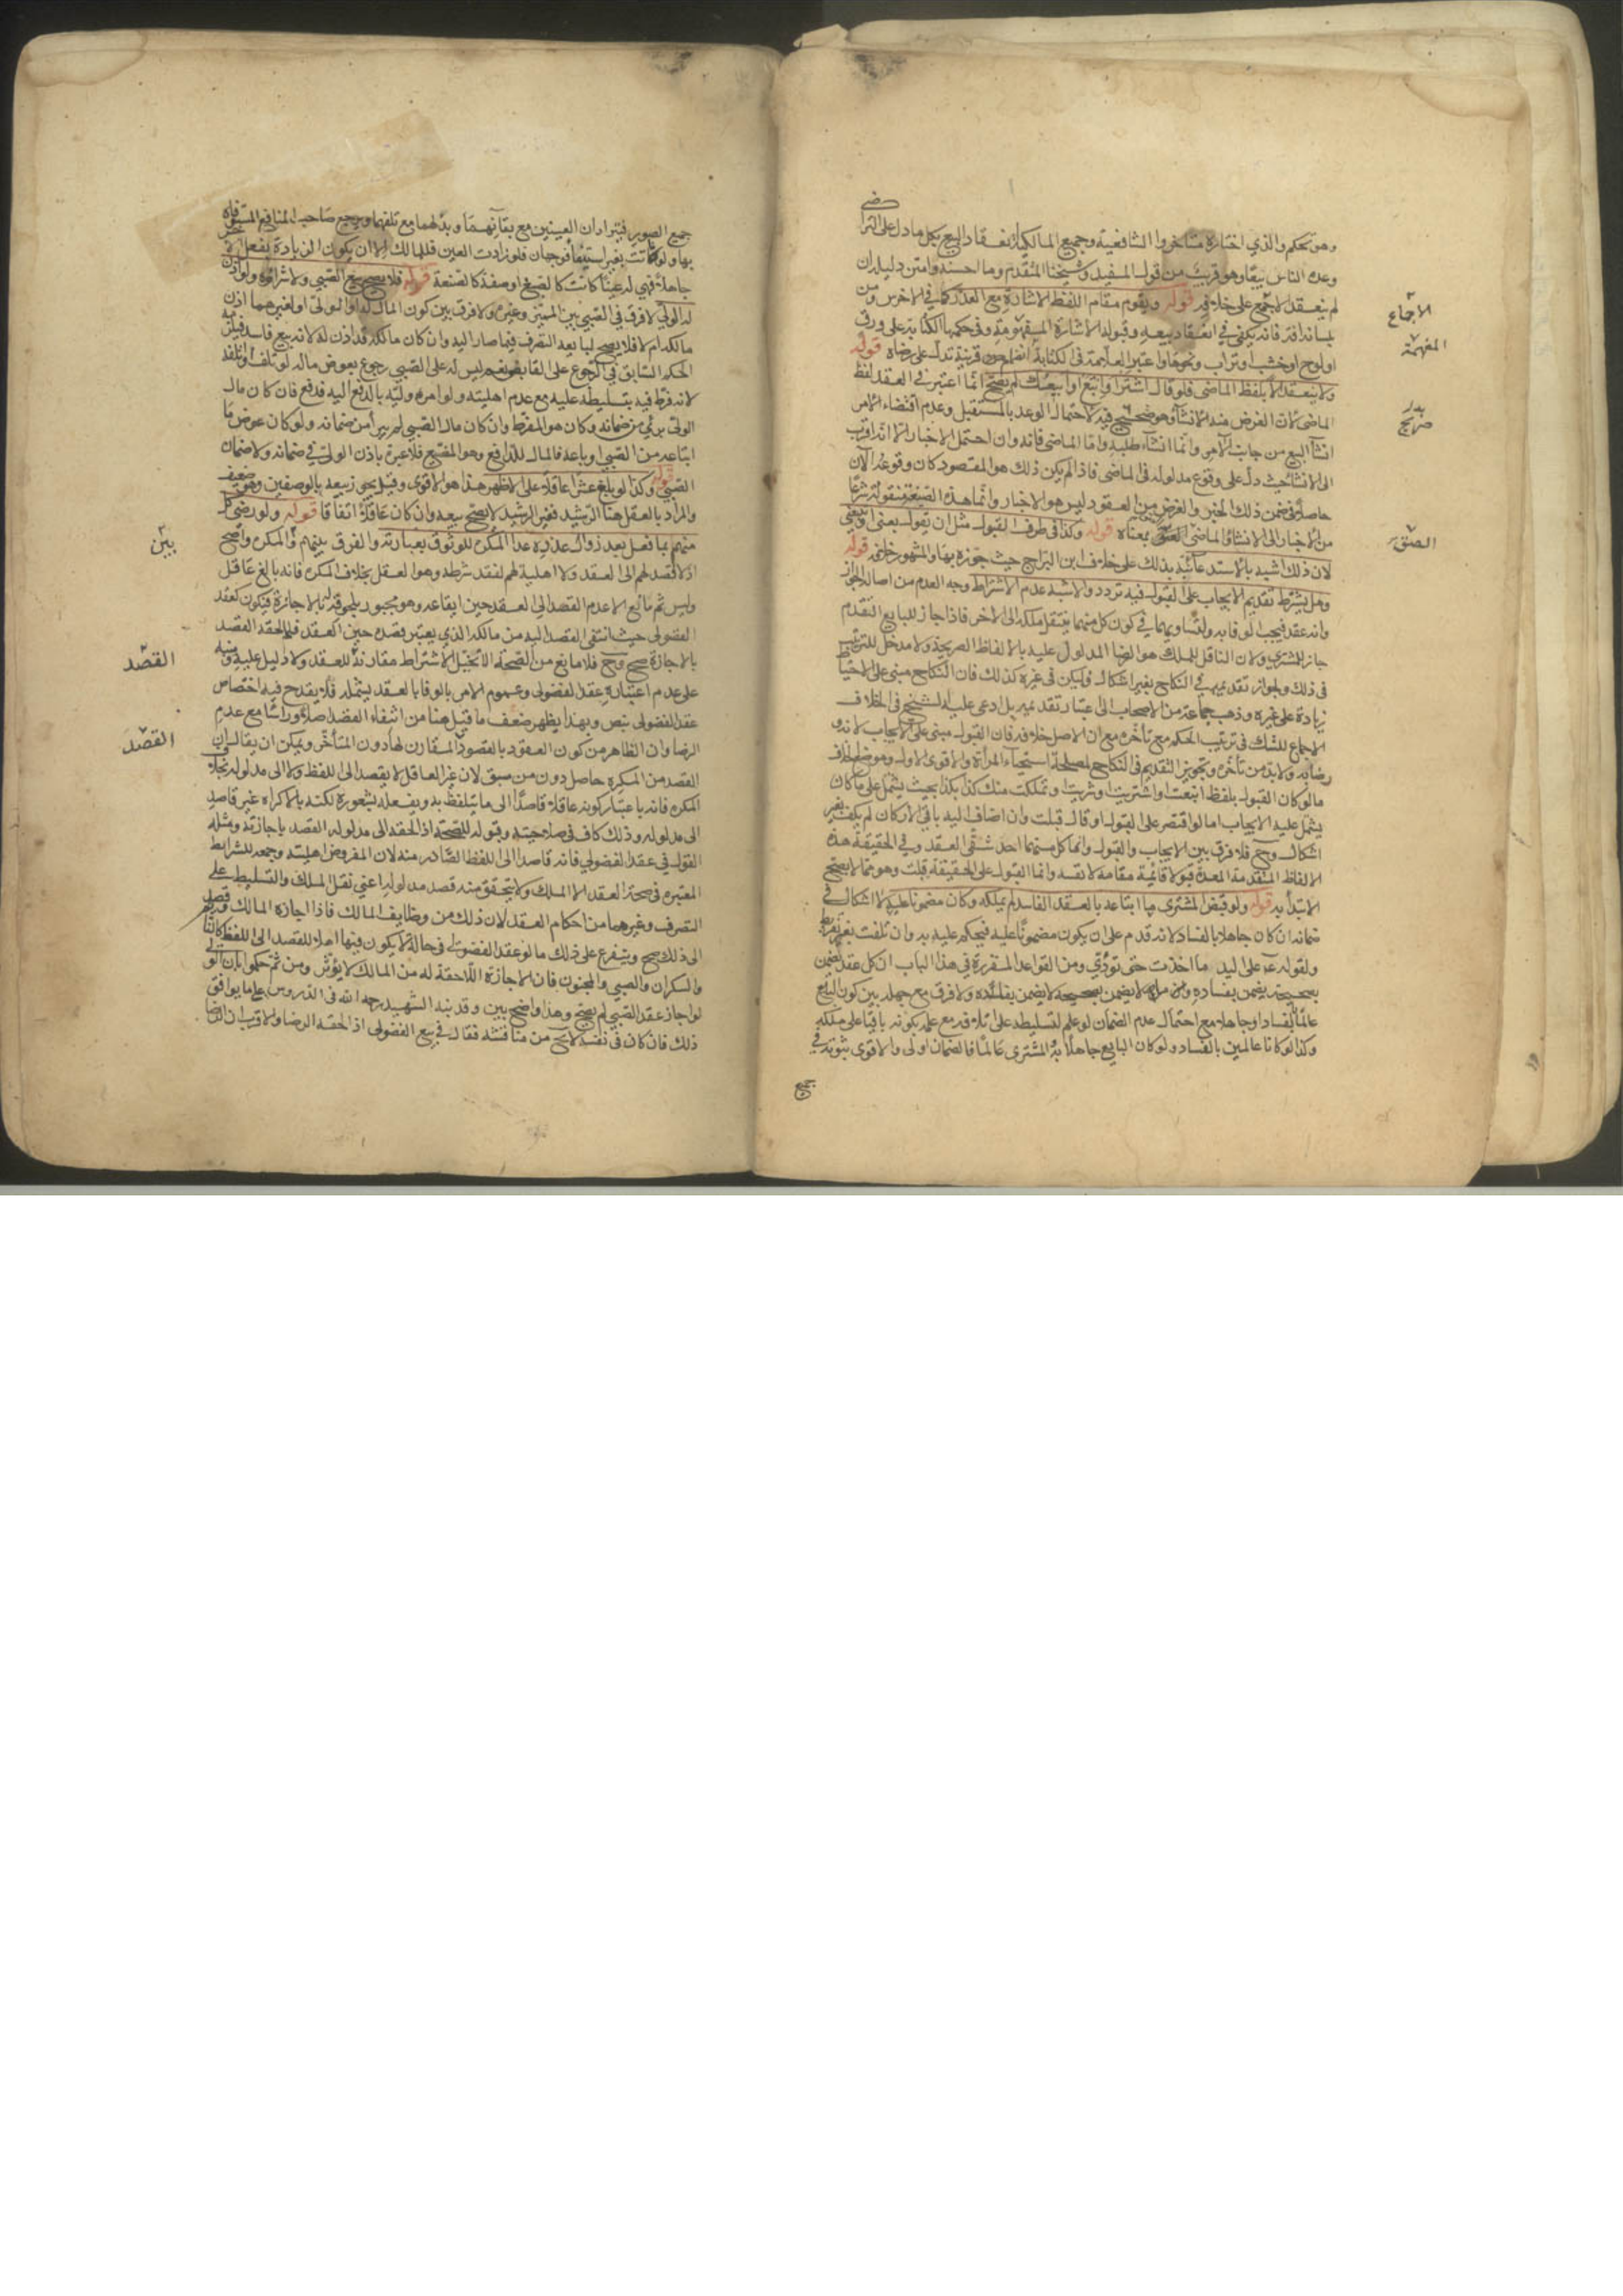 وهو تحكم والذي اختاره متأخروا الشافعية وجميع المالكية انعقاد البيع بكل ما دل على التراضي
وعده الناس بيعا وهو قريب من قول المفيد وشيخنا المتقدم وما احسنه وامتن دليله ان
لم ينعقد الاجماع على خلافه قوله ويقوم مقام اللفظ الاشارة مع العذر كما في الاخرس ومن
بلسانه آفة فانه يكفي في انعقاد بيعه وقبوله الاشارة المفهمة وفي حكمها الكتابة على ورق
او لوح او خشب او تراب ونحوها واعتبر العلامة في الكتابة انضمام قرينة تدل على رضاه قوله
ولا ينعقد الا بلفظ الماضي فلو قال اشتر او ابتع او ابيعك لم يصح انما اعتبر في العقد لفظ
الماضي لان الغرض منه الانشاء وهو صريح فيه لاحتمال الوعد بالمستقبل وعدم اقتضاء الامر
انشآ البيع من جانب الآمر وانما انشاء طلبه واما الماضي فانه وان احتمل الاخبار الا انه اقرب
الى الانشا حيث دل على وقوع مدلوله في الماضي فاذا لم يكن ذلك هو المقصود كان وقوعه الآن
حاصلا في ضمن ذلك الخبر والغرض من العقود ليس هو الاخبار وانما هذه الصيغة منقولة شرعا
من الاخبار الى الانشا والماضي بمعناه قوله وكذا في طرف القبول مثل ان يقول بعني او تبيعني
لان ذلك اشبه بالاستدعاء نبه بذلك على خلاف ابن البراج حيث جوزه بها والمشهور خلافه قوله
وهل يشترط تقديم الايجاب على القبول فيه تردد والاشبه عدم الاشتراط وجه العدم من اصالة الجواز
وانه عقد فيجب الوفا به ولتساويهما في كون كل منهما ينتقل ملكه الى الاخر فاذا جاز للبايع التقدم
جاز للمشتري ولان الناقل للملك هو الرضا المدلول عليه بالالفاظ الصريحة ولا مدخل للترتيب
في ذلك ولجواز تقديمه في النكاح بغير اشكال فليكن في غيره كذلك فان النكاح مبنى على الاحتياط
زيادة على غيره وذهب جماعة من الاصحاب الى اعتبار تقديمه بل ادعى عليه الشيخ في الخلاف
الاجماع للشك في ترتب الحكم مع تأخره مع ان الاصل خلافه فان القبول مبنى على الايجاب لانه
رضا به ولا بد من تأخره وتجويز التقديم في النكاح لمصلحة استحياء المرأة والاقوى الاول وموضع الخلاف
ما لو كان القبول بلفظ ابتعت واشتريت وشريت وتملكت منك كذا بكذا بحيث يشمل على ما كان
يشمل عليه الايجاب اما لو اقتصر على القبول او قال قبلت وان اضاف اليه باقي الاركان لم يكف بغير
اشكال وح فلا فرق بين الايجاب والقبول وانما كل منهما احد شقي العقد وفي الحقيقة هذه
الالفاظ المتقدمة المعدة قبولا قائمة مقامه لا نفسه وانما القبول على الحقيقة قبلت وهو مما لا يصح
الابتداء به قوله ولو قبض المشتري ما ابتاعه بالعقد الفاسد لم يملكه وكان مضمونا عليه لا اشكال في
ضمانه ان كان جاهلا بالفساد لانه قدم على ان يكون مضمونا عليه فيحكم عليه به وان تلفت بغير تفريط
ولقوله على اليد ما اخذت حتى تؤدي ومن القواعد المقررة في هذا الباب ان كل عقد يضمن
بصحيحه يضمن بفاسده وما لا يضمن بصحيحه لا يضمن بفاسده ولا فرق مع جهله بين كون البايع
عالما بالفساد او جاهلا مع احتمال عدم الضمان لو علم لتسليطه على اتلافه مع علمه بكونه باقيا على ملكه
وكذا لو كانا عالمين بالفساد ولو كان البايع جاهلا به المشتري عالما فالضمان اولى والاقوى ثبوته في
جميع
الاجماع
المفهمة
صريح
جميع الصور فيترادان العينين مع بقائهما وبدلهما مع تلفهما ويرجع صاحب المنافع المستوفاة
بها ولو فاتت بغير استيفاء فوجهان فلو زادت العين فللمالك الا ان يكون الزيادة بفعل الآخر
جاهلا فهي له عينا كانت كالصبغ او صفة كالصنعة قوله فلا يصح بيع الصبي ولا شراؤه ولو اذن
له الولي لا فرق في الصبي بين المميز وغيره ولا فرق بين كون المال له او للولي او لغيرهما اذن
مالكه ام لا فلا يصح لبايعه التصرف فيما صار اليه وان كان مالكه قد اذن له لانه بيع فاسد فيلحقه
الحكم السابق في الرجوع على القابض نعم ليس له على الصبي رجوع بعوض ماله لو تلف او اتلفه
لانه فرط فيه بتسليطه عليه مع عدم اهليته ولو امره وليه بالدفع اليه فدفع فان كان مال
الولي برئ من ضمانه وكان هو المفرط وان كان مال الصبي لم يبرأ من ضمانه ولو كان عوض ما
ابتاعه من الصبي او باعه فالمال للدافع وهو المضيع فلا عبرة باذن الولي في ضمانه ولا ضمان
الصبي قوله وكذا لو بلغ عشرا عاقلا على الاظهر هذا هو الاقوى وقيل يجوز بيعه بالوصفين وهو ضعيف
والمراد بالعقل هنا الرشيد فغير الرشيد لا يصح بيعه وان كان عاقلا اتفاقا قوله ولو رضي كل
منهم بما فعل بعد زوال عذره عدا المكره للوثوق بعبارته والفرق بينهم والمكره واضح
اذ لا قصد لهم الى العقد ولا اهلية لهم لفقد شرطه وهو العقل بخلاف المكره فانه بالغ عاقل
وليس ثم مانع الا عدم القصد الى العقد حين ايقاعه وهو مجبور بلحوقه له بالاجازة فيكون كعقد
الفضولي حيث انتفى القصد اليه من مالكه الذي يعتبر قصده حين العقد فلما لحقه القصد
بالاجازة صح وح فلا مانع من الصحة الا تخيل اشتراط مقارنة للعقد ولا دليل عليه وينبه
على عدم اعتباره عقد الفضولي وعموم الامر بالوفا بالعقد يشمله فلا يقدح فيه اختصاص
عقد الفضولي بنص وبهذا يظهر ضعف ما قيل هنا من انتفاء القصد اصلا وراسا مع عدم
الرضا وان الظاهر من كون العقود بالقصود المقارن لها دون المتأخر ويمكن ان يقال ان
القصد من المكره حاصل دون من سبق لان غير العاقل لا يقصد الى اللفظ ولا الى مدلوله بخلاف
المكره فانه باعتبار كونه عاقلا قاصدا الى ما يتلفظ به ويفعله بشعوره لكنه بالاكراه غير قاصد
الى مدلوله وذلك كاف في صلاحيته وقبوله للصحة اذا لحقه الى مدلوله القصد باجازته ومثله
القول في عقد الفضولي فانه قاصد الى اللفظ الصادر منه لان المفروض اهليته وجمعه للشرايط
المعتبرة في صحة العقد الا الملك ولا يتحقق منه قصد مدلوله اعني نقل الملك والتسليط على
التصرف وغيرهما من احكام العقد لان ذلك من وظايف المالك فاذا اجازه المالك وقصد
الى ذلك صح ويتفرع على ذلك ما لو عقد الفضولي في حالة لا يكون فيها اهلا للقصد الى اللفظ كالنائم
والسكران والصبي والمجنون فان الاجازة اللاحقة له من المالك لا يؤثر ومن ثم حكموا بان الولي
لو اجاز عقد الصبي لم يصح وهذا واضح بين وقد نبه الشهيد رحمه الله في الدروس على ما يوافق
ذلك فان كان في نفسه لا يخ من مناقشة فقال في بيع الفضولي اذا لحقه الرضا والاقرب ان الرضا
بين
القصد
القصد